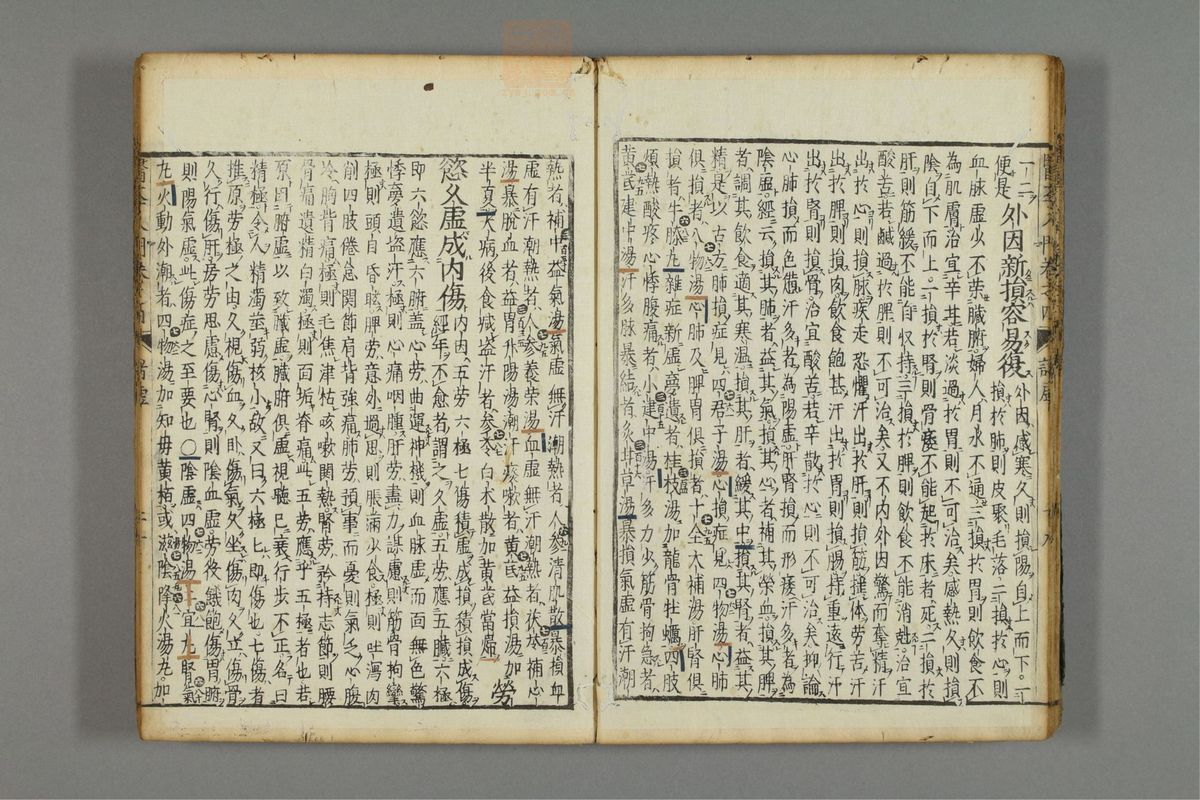 便是外因新損容易復外因感寒久則損陽自上而下一損於肺則皮聚毛落二損於心則
血脉虛少不荣臟腑婦人月水不通三損於胃則飲食不
為肌膚治宜辛甘若淡過於胃則不可治矣感熱久則損
陰自下而上一損於腎則骨痿不能起於床者死二損於
肝則筋緩不能自收持三損於脾則飲食不能消尅治宜
酸苦若鹹過於脾則不可治矣又不内外因驚而奪精汗
出於心則損脉疾走恐懼汗出於肝則損筋揺体劳苦汗
出於脾則損肉飲食飽甚汗出於胃則損腸持重遠行汗
出於腎則損骨治宜酸苦若辛散於心則不可治矣抑論
心肺損而色㢢汗多者為陽虛肝腎損而形痿汗多者為
陰虛經云損其肺者益其氣損其心者補其榮血損其脾
者調其飲食適其寒温損其肝者緩其中損其腎者益其
精是以古方肺損症見四君子湯心損症見四物湯心肺
俱損者八物湯心肺及脾胃俱損者十全大補湯肝腎俱
損者牛膝丸雜症新虛夢遺者桂枝湯加龍骨牡蠣四肢
煩熱酸疼心悸腹痛者小建中湯汗多力少筋骨拘急者
黄芪建中湯汗多脉暴結者炙甘草湯暴損氣虛有汗潮
熱者補中益氣湯氣虛無汗潮熱者人參清肌散暴損血
虛有汗潮熱者人參養荣湯血虛無汗潮熱者茯苓補心
湯暴脱血者益胃升陽湯潮汗痰嗽者黄芪益損湯加
半夏大病後食堿盗汗者參苓白术散加黄芪當歸勞
慾久虛成内傷内因五劳六極七傷積虛成損積損成傷經年不愈者謂之久虛五劳應五臟六極
即六慾應六腑盖心劳曲運神機則血脉虛而面無色驚
悸夢遺盗汗極則心痛咽腫肝劳盡力謀慮則筋骨拘攣
極則頭目昏眩脾劳意外過思則脹滿少食極則吐瀉肉
削四肢倦怠関節肩背強痛肺劳預事而憂則氣乏心腹
冷胸背痛極則毛焦津枯咳嗽関熱腎劳矜持志節則腰
骨痛遺精白濁極則面垢脊痛此五劳應乎五極者也若
原因腑虛以致臟虛臟腑俱虛視聽已衰行步不正名曰
精極令人精濁莖弱核小故又曰六極七即傷也七傷者
推原劳極之由久視傷血久卧傷氣久坐傷肉久立傷骨
久行傷肝房劳思慮傷心腎則陰血虛劳役餓飽傷胃腑
則陽氣虛此傷症之至要也○陰虛四物湯宜九腎氣
丸火動外潮者四物湯加知母黄栢或滋陰降火湯九加